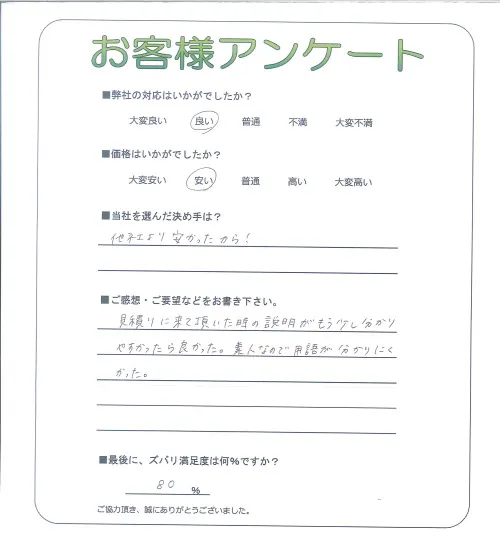 お客様アンケート
■弊社の対応はいかがでしたか？
大変良い 良い 普通 不満 大変不満
■価格はいかがでしたか？
大変安い 安い 普通 高い 大変高い
■当社を選んだ決め手は？
他社より安かったから!
■ご感想・ご要望などをお書き下さい。
見積りに来て頂いた時の説明がもう少し分かり
やすかったら良かった。素人なので用語が分かりにく
かった。
■最後に、ズバリ満足度は何%ですか？
80 %
ご協力頂き、誠にありがとうございました。